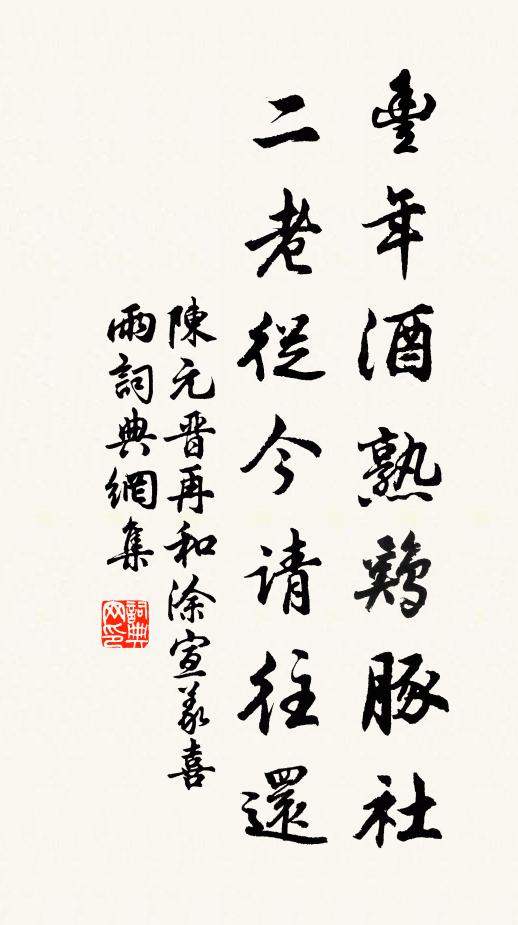 豐年酒熟鷄豚社
二老從今请往還
陳元晋再和涂宣義喜
雨詞典網集
詞典网印